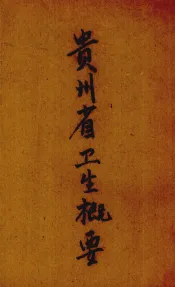 貴州省卫生概要